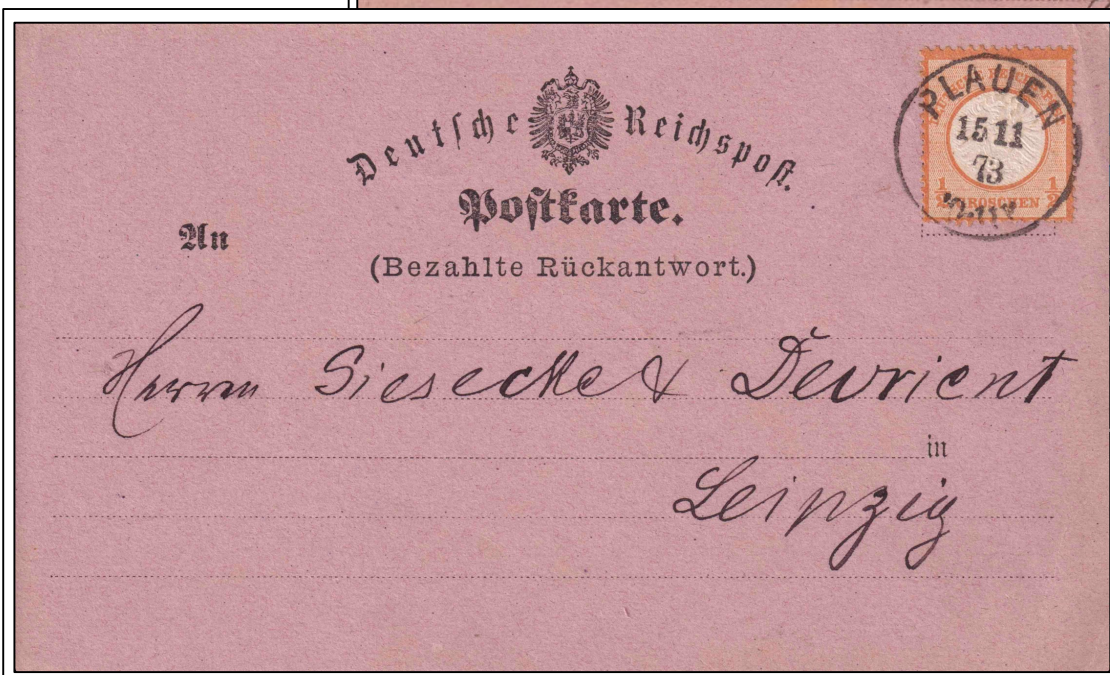 Deutsche Reichspost.
Postkarte.
An
(Bezahlte Rückantwort.)
PLAUEN
15 11
73
1/2 GROSCHEN 1/2
Herren Giesecke & Devrient
in
Leipzig